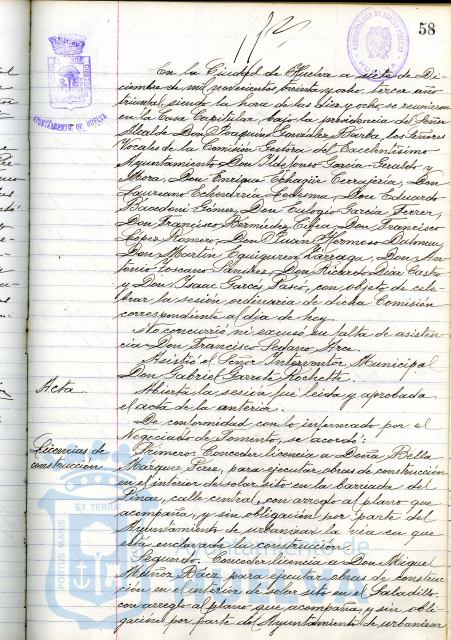 58
AYUNTAMIENTO DE HUELVA
En la Ciudad de Huelva a siete de Di-
ciembre de mil novecientos treinta y ocho, tercer año
triunfal, siendo la hora de las diez y ocho se reunieron
en la Casa Capitular, bajo la presidencia del Señor
Alcalde Don Joaquín González Barba, los Señores
Vocales de la Comisión Gestora del Excelentísimo
Ayuntamiento, Don Ildefonso García Giraldo y
Mora, Don Enrique Echagüe Cerrajería, Don
Laureano Echevarría Ledesma, Don Eduardo
Gómez, Don Eulogio García Ferrer,
Don Francisco Bermúdez Cifra, Don Francisco
López Romero, Don Juan Hermoso Dalmau,
Don Martín Eguiguren Lárraga, Don An-
tonio Toscano Ramírez, Don Ricardo Díaz Castro
y Don Isaac Garcés Pasco, con objeto de cele-
brar la sesión ordinaria de dicha Comisión
correspondiente al día de hoy.
No concurrió ni excusó su falta de asisten-
cia Don Francisco Arce.
Asistió el Señor Interventor Municipal
Don Gabriel Garrote Rochette.
Acta.
Abierta la sesión fue leída y aprobada
el acta de la anterior.
De conformidad con lo informado por el
Negociado de Fomento, se acordó:
Licencias de
construcción
Primero. Conceder licencia a Doña Bella
Márquez Pérez, para ejecutar obras de construcción
en el interior de solar sito en la barriada del
Pinar, calle central, con arreglo al plano que
acompaña, y sin obligación por parte del
Ayuntamiento de urbanizar la vía en que
está enclavada la construcción.
Segundo. Conceder licencia a Don Miguel
Muñoz Báez para ejecutar obras de construc-
ción en el interior de solar sito en el Saladillo,
con arreglo al plano que acompaña, y sin obli-
gación por parte del Ayuntamiento de urbanizar
ET TERRAE
PORTUS MARIS
Ayuntamiento de